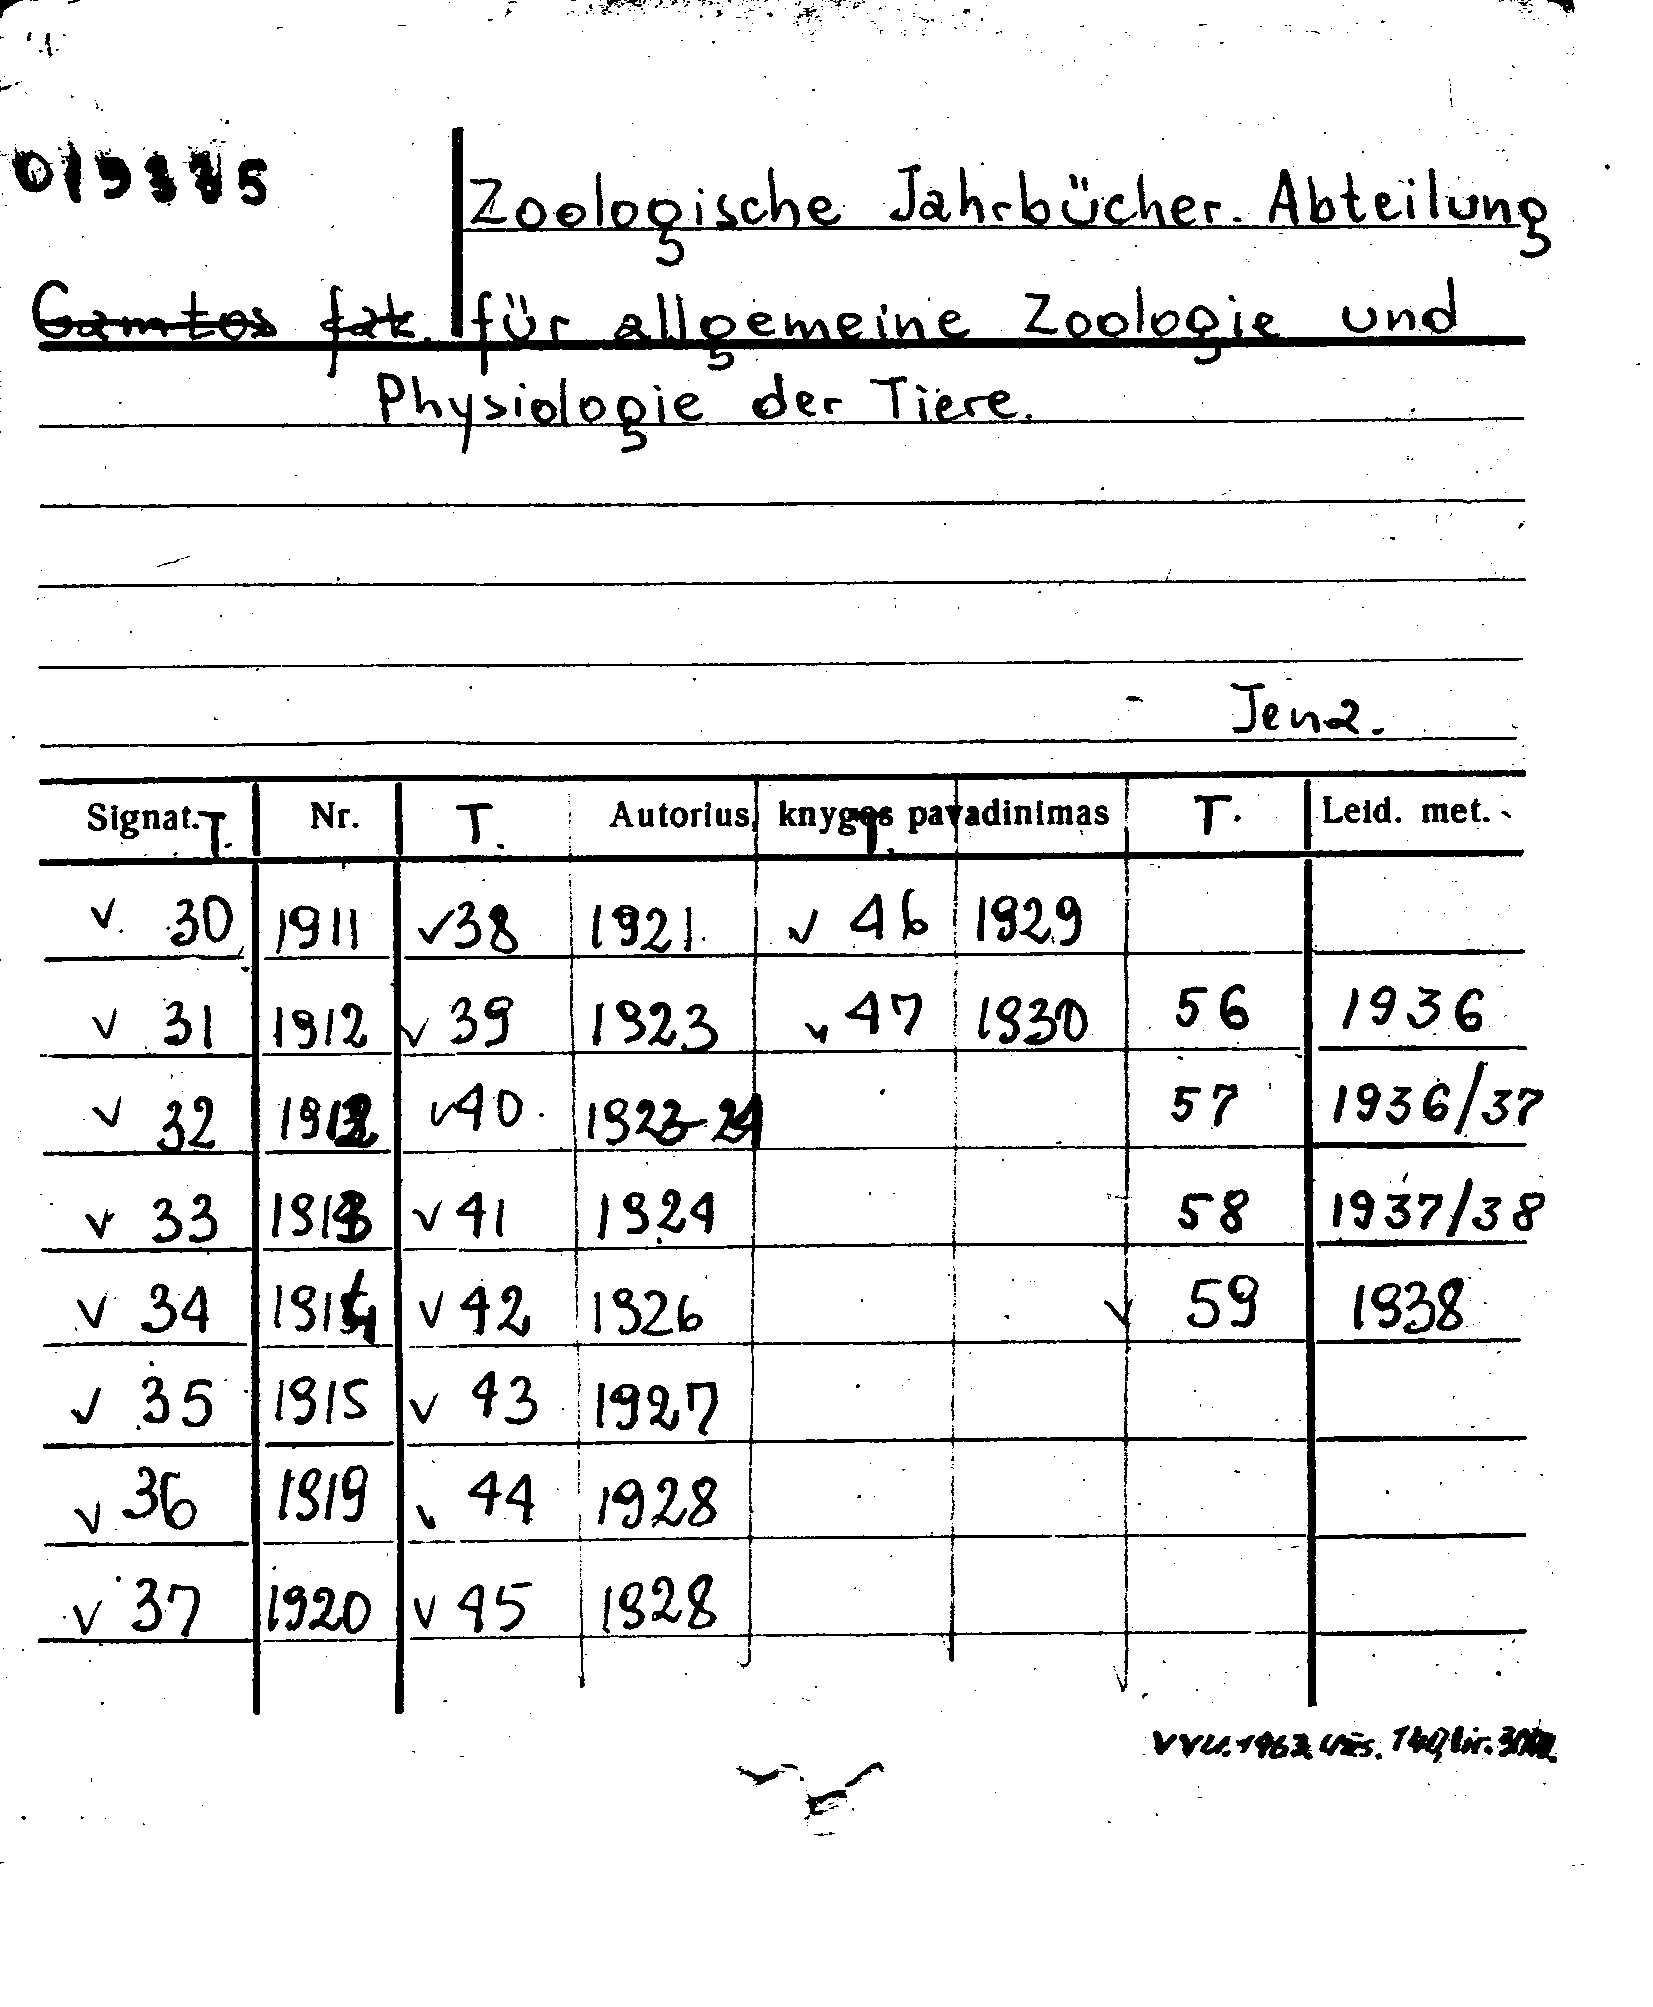 Zoologische Jahrbücher. Abteilung
Gamtos fak. für allgemeine Zoologie und
Physiologie der Tiere.
Jena.
Signat. T. Nr. T. Autorius, knygos pavadinimas T. T. Leid. met.
v 30 1911 v 38 1921 v 46 1929
v 31 1912 v 39 1923 v 47 1930 56 1936
v 32 1912 v 40 1923-24 57 1936/37
v 33 1913 v 41 1924 58 1937/38
v 34 1914 v 42 1926 v 59 1938
v 35 1915 v 43 1927
v 36 1919 v 44 1928
v 37 1920 v 45 1928